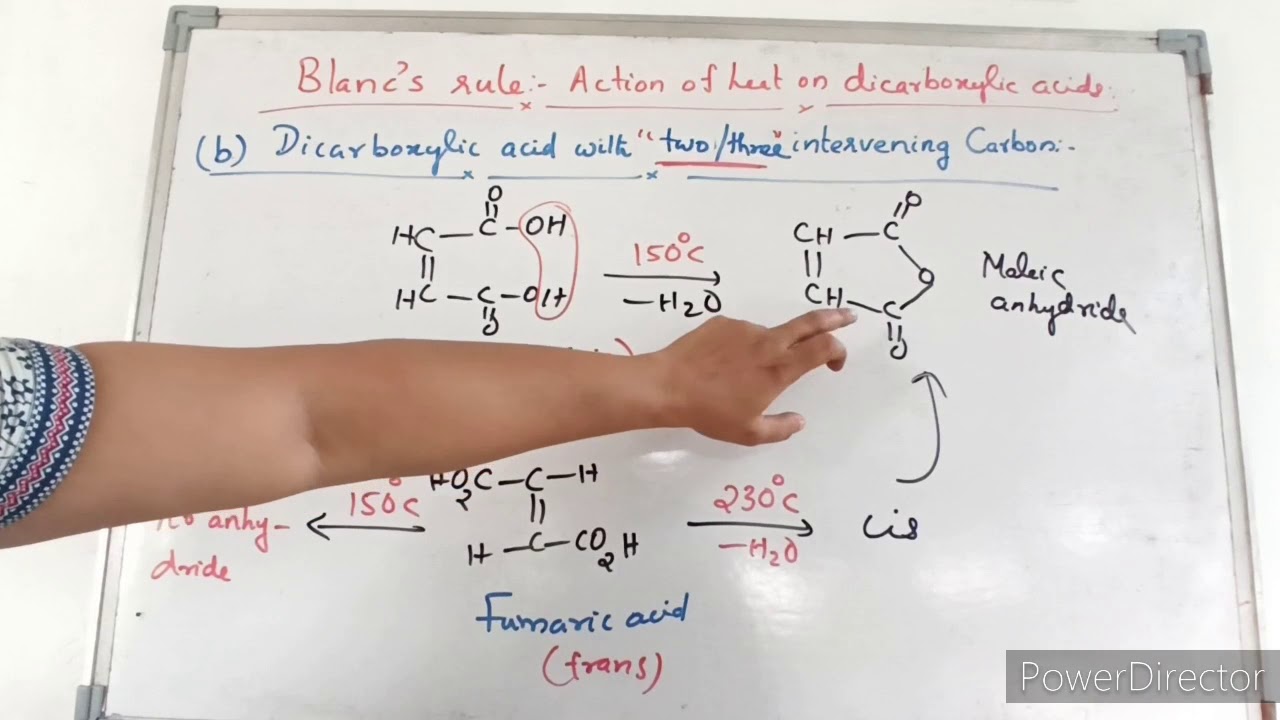 Blanc's rule:- Action of heat on dicarboxylic acids:
(b) Dicarboxylic acid with "two/three" intervening Carbon:-
O
HC — C - OH
HC — C - OH
O
150°C
-H2O
O
CH — C
O
CH — C
O
Maleic
anhydride
HO2C - C - H
H - C - CO2H
150°C
anhy-
dride
230°C
-H2O
cis
Fumaric acid
(trans)
PowerDirector